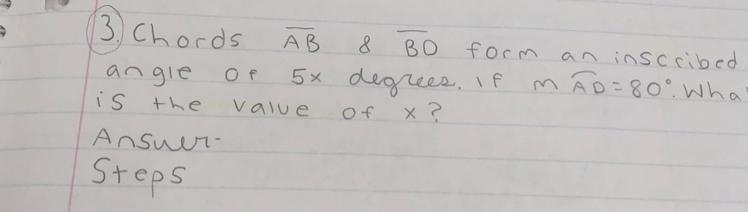 3. Chords AB & BD form an inscribed
angle of 5x degrees. If m AD = 80°. Wha
is the value of x?
Answer-
Steps